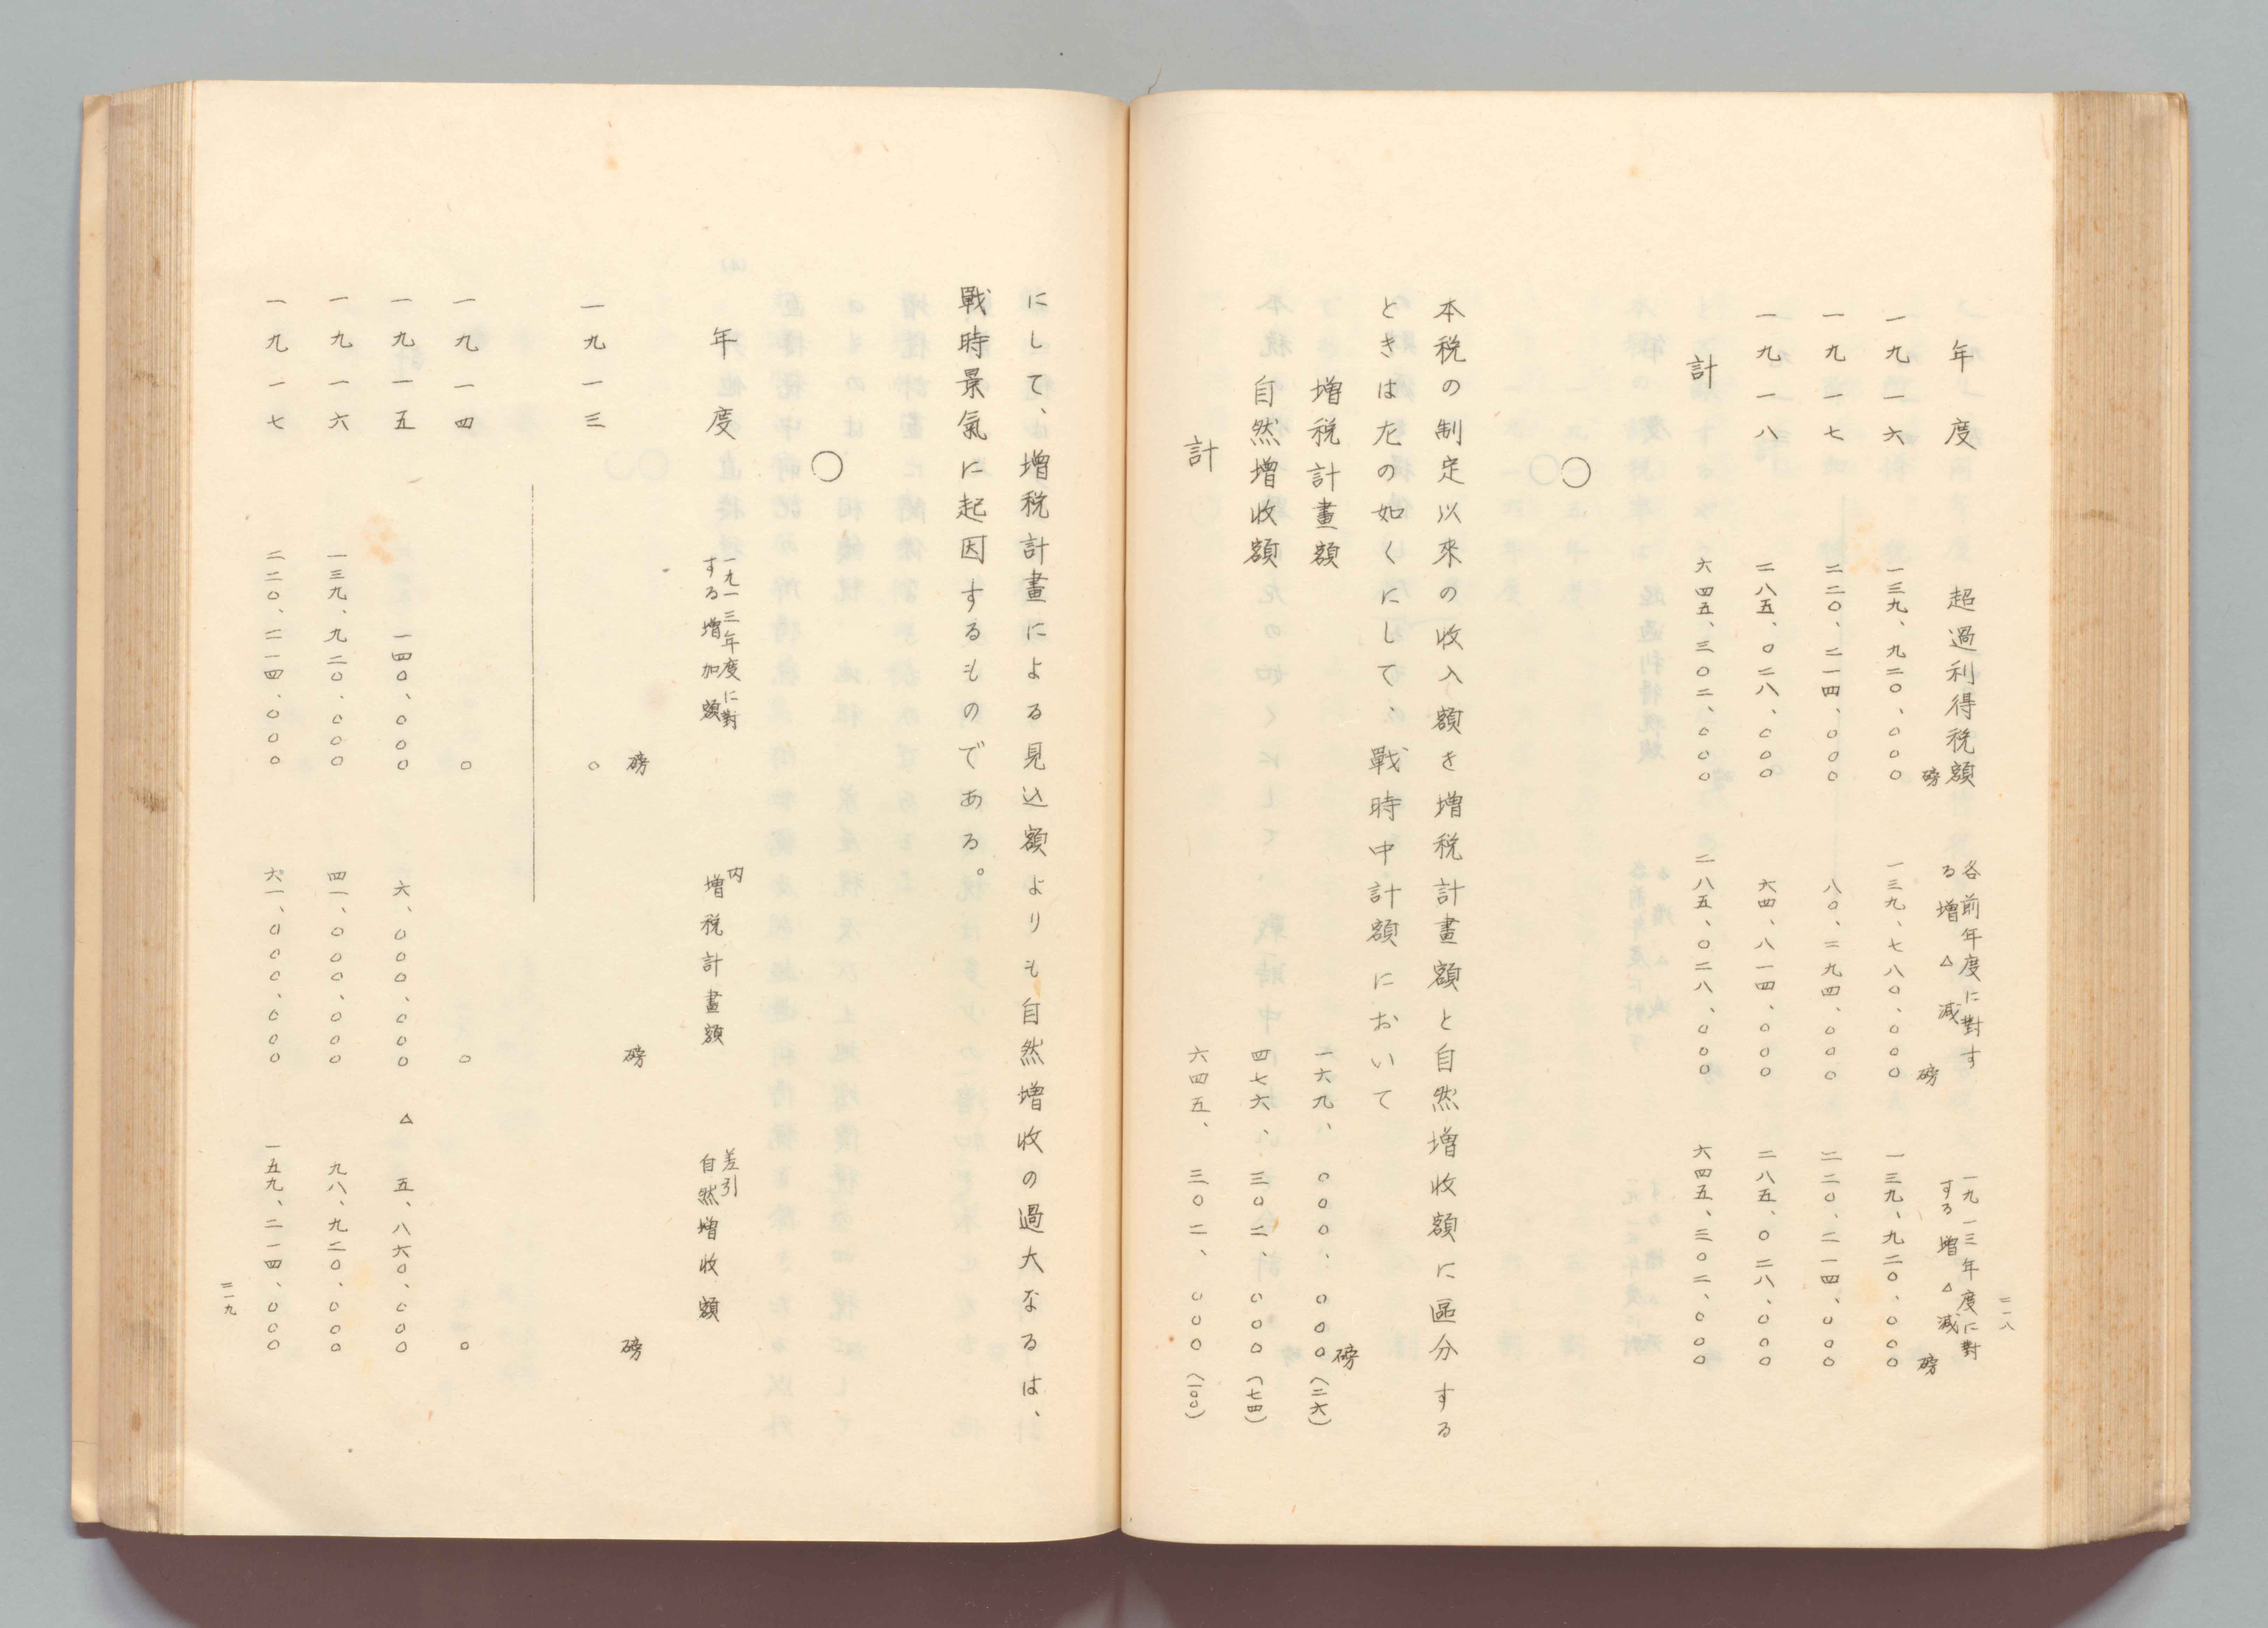 二一八
年度 超過利得税額 各前年度に對する増△減 一九一三年度に對する増△減
磅 磅 磅
一九一六 一三九、九二〇、〇〇〇 一三九、七八〇、〇〇〇 一三九、九二〇、〇〇〇
一九一七 二二〇、二一四、〇〇〇 八〇、二九四、〇〇〇 二二〇、二一四、〇〇〇
一九一八 二八五、〇二八、〇〇〇 六四、八一四、〇〇〇 二八五、〇二八、〇〇〇
計 六四五、三〇二、〇〇〇 二八五、〇二八、〇〇〇 六四五、三〇二、〇〇〇
〇
本税の制定以來の收入額を増税計畫額と自然増收額に區分する
ときは左の如くにして、戰時中計額において
磅
増税計畫額 一六九、〇〇〇、〇〇〇(二六)
自然増收額 四七六、三〇二、〇〇〇(七四)
計 六四五、三〇二、〇〇〇(一〇〇)
にして、増税計畫による見込額よりも自然増收の過大なるは、
戰時景氣に起因するものである。
〇
年度 一九一三年度に對する増加額 内増税計畫額 差引自然増收額
磅 磅 磅
一九一三 〇
一九一四 〇 〇 〇
一九一五 一四〇、〇〇〇 六、〇〇〇、〇〇〇 △五、八六〇、〇〇〇
一九一六 一三九、九二〇、〇〇〇 四一、〇〇〇、〇〇〇 九八、九二〇、〇〇〇
一九一七 二二〇、二一四、〇〇〇 六一、〇〇〇、〇〇〇 一五九、二一四、〇〇〇
二一九